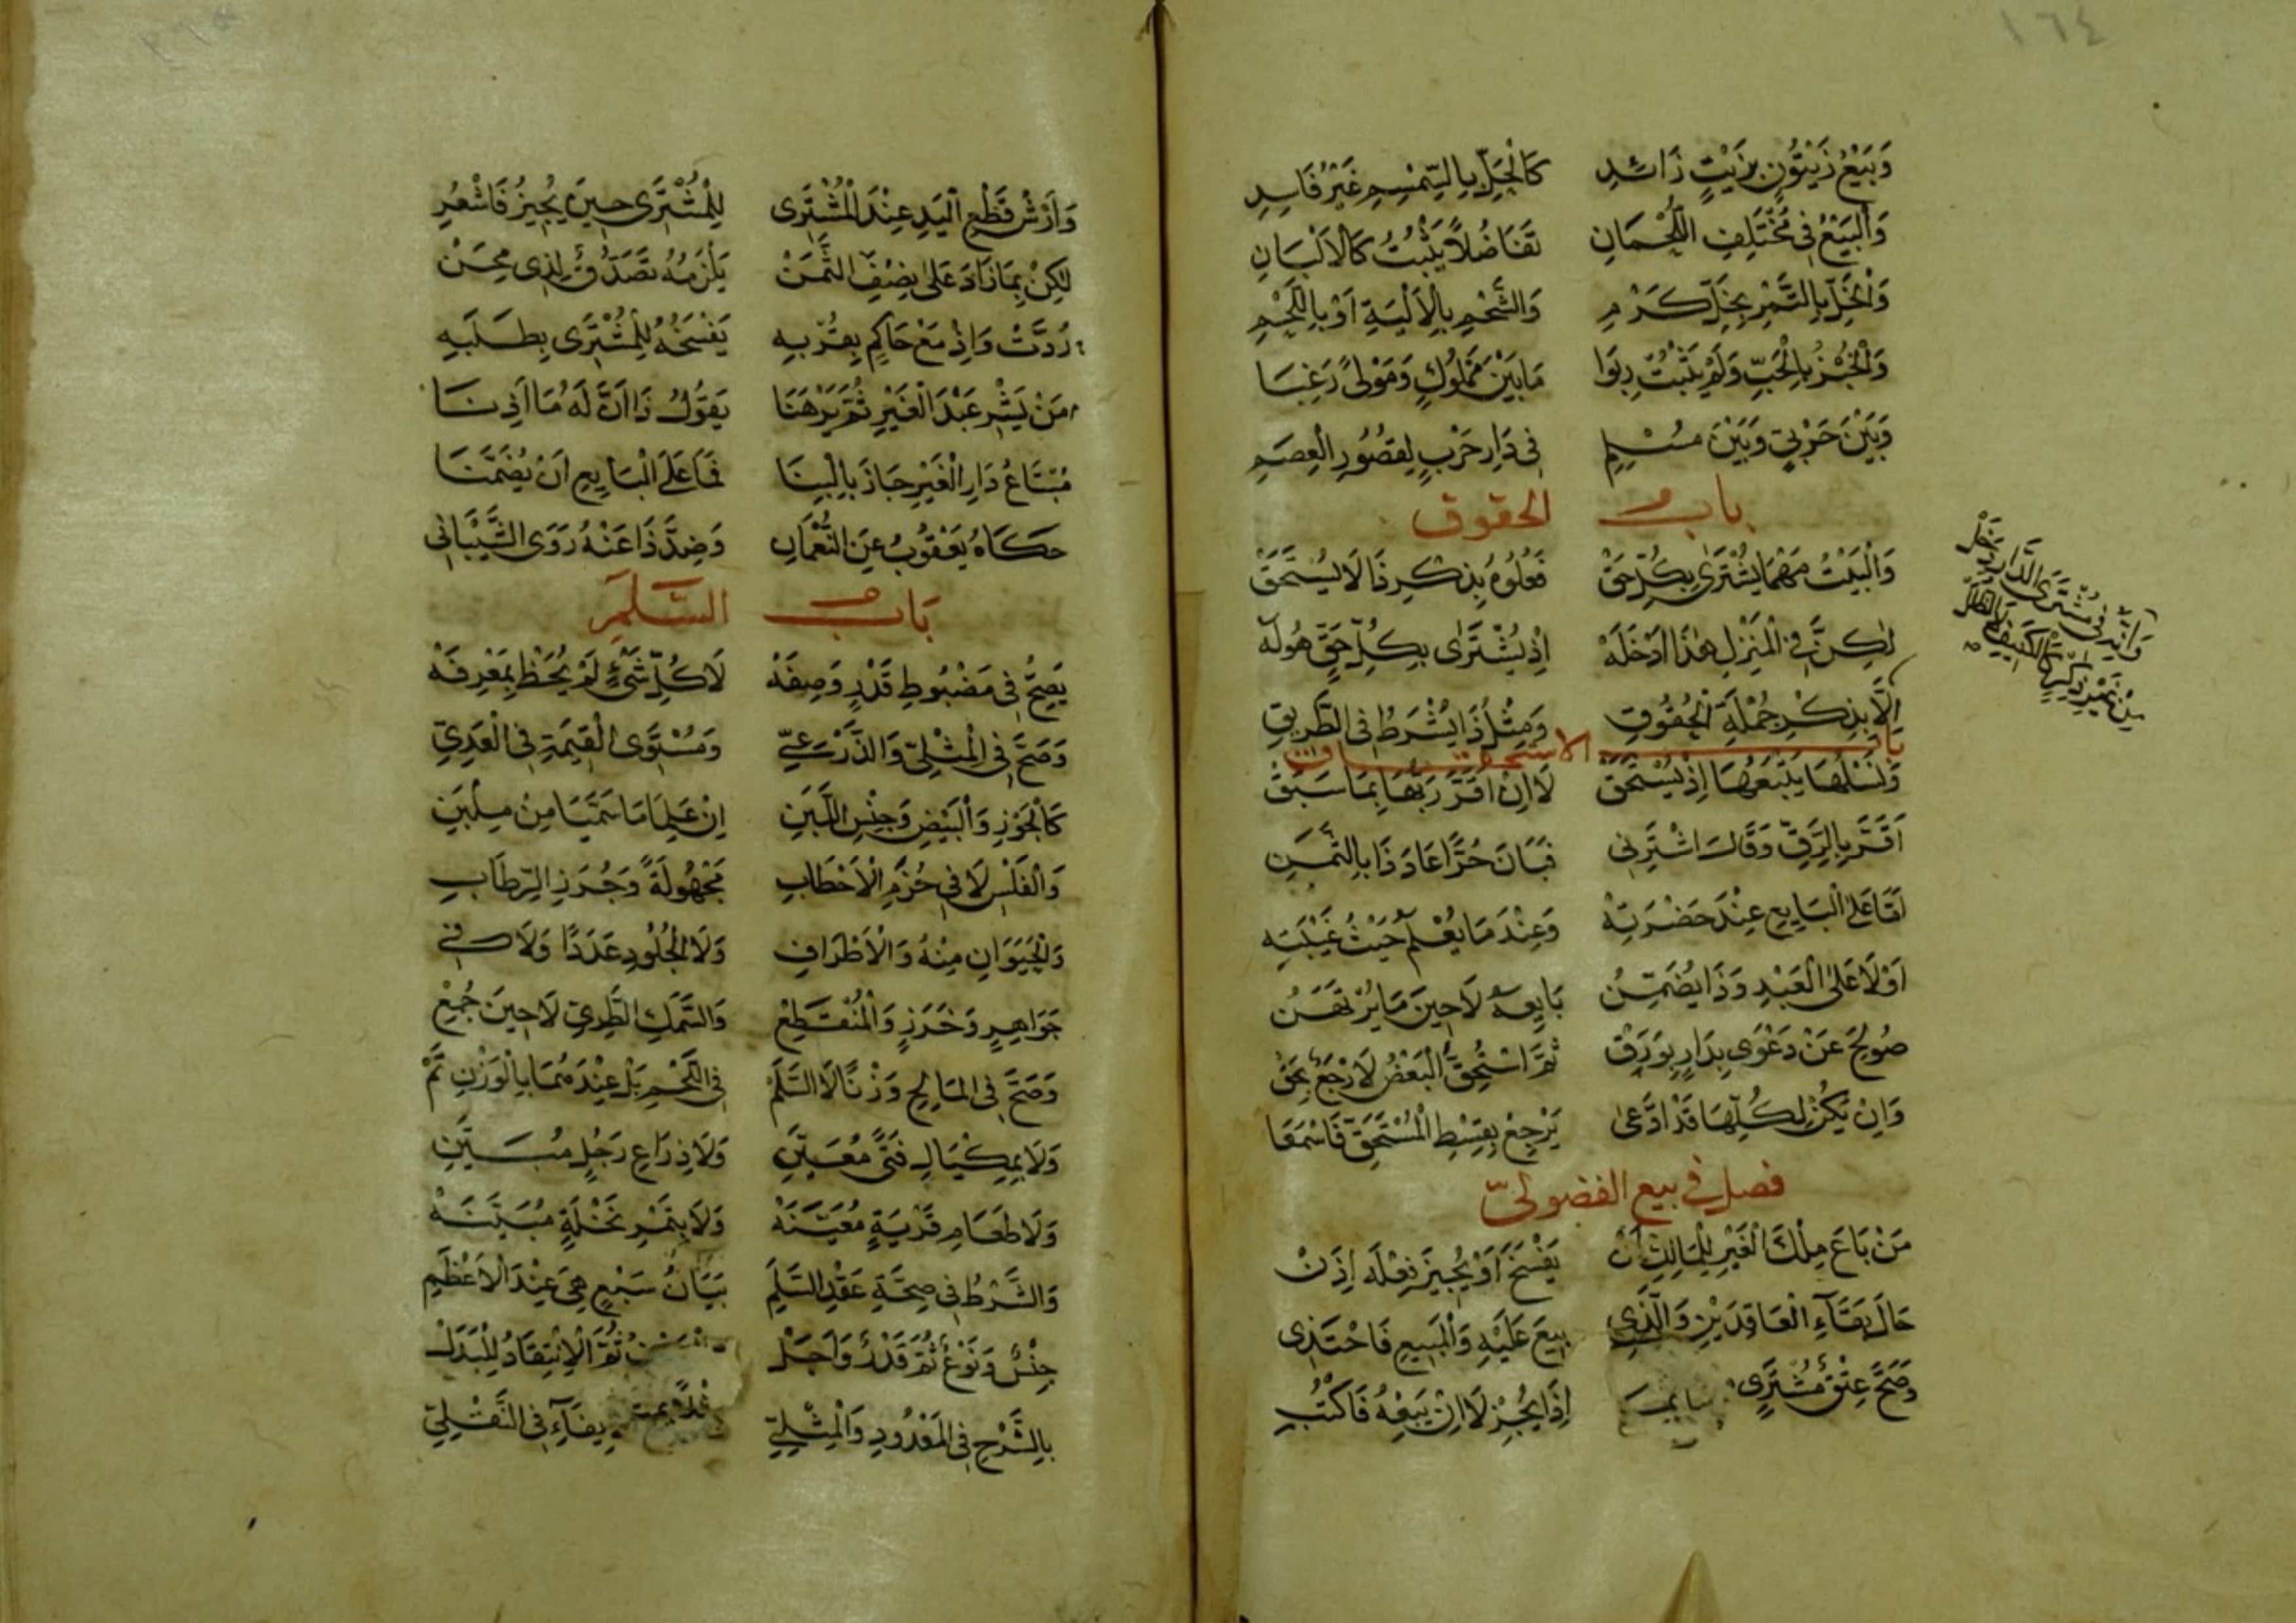 ١٦٤
وَبَيْعُ زَيْتُونٍ بِزَيْتٍ زَائِدِ كَالْحَلِّ بِالسِّمْسِمِ غَيْرُ فَاسِدِ
وَالْبَيْعُ فِي مُخْتَلِفِ اللُّحْمَانِ تَفَاضُلاً يَثْبُتُ كَالْاَلْبَانِ
وَالْخَلِّ بِالتَّمْرِ بِخَلِّ كَرْمِ وَالشَّحْمِ بِالْاَلْيَةِ اَوْ بِاللَّحْمِ
وَالْخُبْزُ بِالْحَبِّ وَلَمْ يَثْبُتْ رِبَوا مَا بَيْنَ مَمْلُوكٍ وَمَوْلىً رَغِبَا
وَبَيْنَ حَرْبِيٍّ وَبَيْنَ مُسْلِمِ فِي دَارِ حَرْبٍ لِقُصُورِ الْعِصَمِ
باب الحقوق
وَالْبَيْتُ مَهْمَا يُشْتَرَى بِكُلِّ حَقْ فَعُلْوُهُ بِذِكْرِ ذَا لَا يُسْتَحَقْ
لٰكِنَّ فِي الْمَنْزِلِ هٰذَا اَدْخَلَهْ اِذْ يُشْتَرٰى بِكُلِّ حَقٍّ هُوَ لَهْ
اِلَّا بِذِكْرِ جُمْلَةِ الْحُقُوقِ وَمِثْلُ ذَا يُشْرَطُ فِي الطَّرِيقِ
باب الاستحقاق
وَنَسْلُهَا يَتْبَعُهَا اِذْ يُسْتَحَقْ لَا اِنْ اَقَرَّ رَبُّهَا بِمَا سَبَقْ
اَقَرَّ بِالرِّقِّ وَقَالَ اشْتَرِنِي فَبَانَ حُرًّا عَادَ ذَا بِالثَّمَنِ
اَمَّا عَلَى الْبَايِعِ عِنْدَ حَضْرَتِهْ وَعِنْدَ مَا يُعْلَمُ حَيْثُ غَيْبَتِه
اَوْ لَا عَلَى الْعَبْدِ وَذَا يُضَمِّنُ بَايِعَهُ لَا حِينَ مَا يُرْتَهَنُ
صُولِحَ عَنْ دَعْوَى بِدَارٍ بِوَرَقْ ثُمَّ اسْتُحِقَّ الْبَعْضُ لَا رَجْعَ بِحَقْ
وَاِنْ يَكُنْ لِكُلِّهَا قَدْ ادَّعَى يَرْجِعْ بِقِسْطِ الْمُسْتَحَقِّ فَاسْمَعَا
فصل في بيع الفضولىّ
مَنْ بَاعَ مِلْكَ الْغَيْرِ لِلْمَالِكِ اَنْ يَفْسَخَ اَوْ يُجِيزَ فِعْلَهُ اِذَنْ
حَالَ بَقَآءِ الْعَاقِدَيْنِ وَالَّذِي بِيعَ عَلَيْهِ وَالْمَبِيعِ فَاحْتَذِى
وَصَحَّ عِتْقُ مُشْتَرٍى اِذَا يُجِزْ لَا اِنْ يَبِعْهُ فَاكْتُبِ
وَاَرْشُ قَطْعِ الْيَدِ عِنْدَ الْمُشْتَرِى لِلْمُشْتَرِى حِينَ يُجِيزُ فَاشْعُرِ
لٰكِنْ بِمَا زَادَ عَلَى نِصْفِ الثَّمَنْ يَلْزَمُهُ تَصَدُّقٌ لِذِى مِحَنْ
رُدَّتْ وَاِذْ مَعْ حَاكِمٍ بِقُرْبِهِ يَفْسَخُهُ لِلْمُشْتَرِى بِطَلَبِهِ
مَنْ يَشْرِ عَبْدَ الْغَيْرِ ثُمَّ بَرْهَنَا بِقَوْلِ ذَا اَنْ لَهُ مَا اَذِنَا
مُبْتَاعُ دَارِ الْغَيْرِ حَازَ بِالْبِنَا فَمَا عَلَى الْبَايِعِ اَنْ يُضَمَّنَا
حَكَاهُ يَعْقُوبُ عَنِ النُّعْمَانِ وَضِدَّ ذَا عَنْهُ رَوَى الشَّيْبَانِي
بَاب السَّلَمِ
يَصِحُّ فِي مَضْبُوطِ قَدْرٍ وَصِفَهْ لَا كُلِّ شَيْءٍ لَمْ يُحَظْ بِمَعْرِفَهْ
وَصَحَّ فِي الْمِثْلِيِّ وَالذَّرْعِيِّ وَمُسْتَوِى الْقِيمَةِ فِي الْعَدِيِّ
كَالْجَوْزِ وَالْبَيْضِ وَجِنْسِ اللَّبَنِ اِنْ عَلِمَا مَا سَمَّيَا مِنْ مِلْبَنِ
وَالْفَلْسِ لَا فِي حُزَمِ الْاَحْطَابِ مَجْهُولَةً وَجُرَزِ الرِّطَابِ
وَالْحَيَوَانِ مِنْهُ وَالْاَطْرَافِ وَلَا الْجُلُودِ عَدَدًا وَلَا فِي
جَوَاهِرٍ وَخَرَزٍ وَالْمُنْقَطِعْ وَالسَّمَكِ الطَّرِيِّ لَا حِينَ جُمِعْ
وَصَحَّ فِي الْمَالِحِ وَزْنًا لَا السَّلَمْ فِي اللَّحْمِ بَلْ عِنْدَهُمَا بِالْوَزْنِ تَمْ
وَلَا بِمِكْيَالِ فَتًى مُعَيَّنِ وَلَا ذِرَاعِ رَجُلٍ مُبَيَّنِ
وَلَا طَعَامِ قَرْيَةٍ مُعَيَّنَهْ وَلَا بِتَمْرِ نَخْلَةٍ مُبَيَّنَهْ
وَالشَّرْطُ فِي صِحَّةِ عَقْدِ السَّلَمِ بَيَانُ سَبْعٍ هِيَ عِنْدَ الْاَعْظَمِ
جِنْسٌ وَنَوْعٌ ثُمَّ قَدْرٌ وَاَجَلْ ثُمَّ الْاِنْتِقَادُ لِلْبَدَلْ
بِالشَّرْحِ فِي الْمَعْدُودِ وَالْمِثْلِيِّ فِي النَّقْلِيِّ